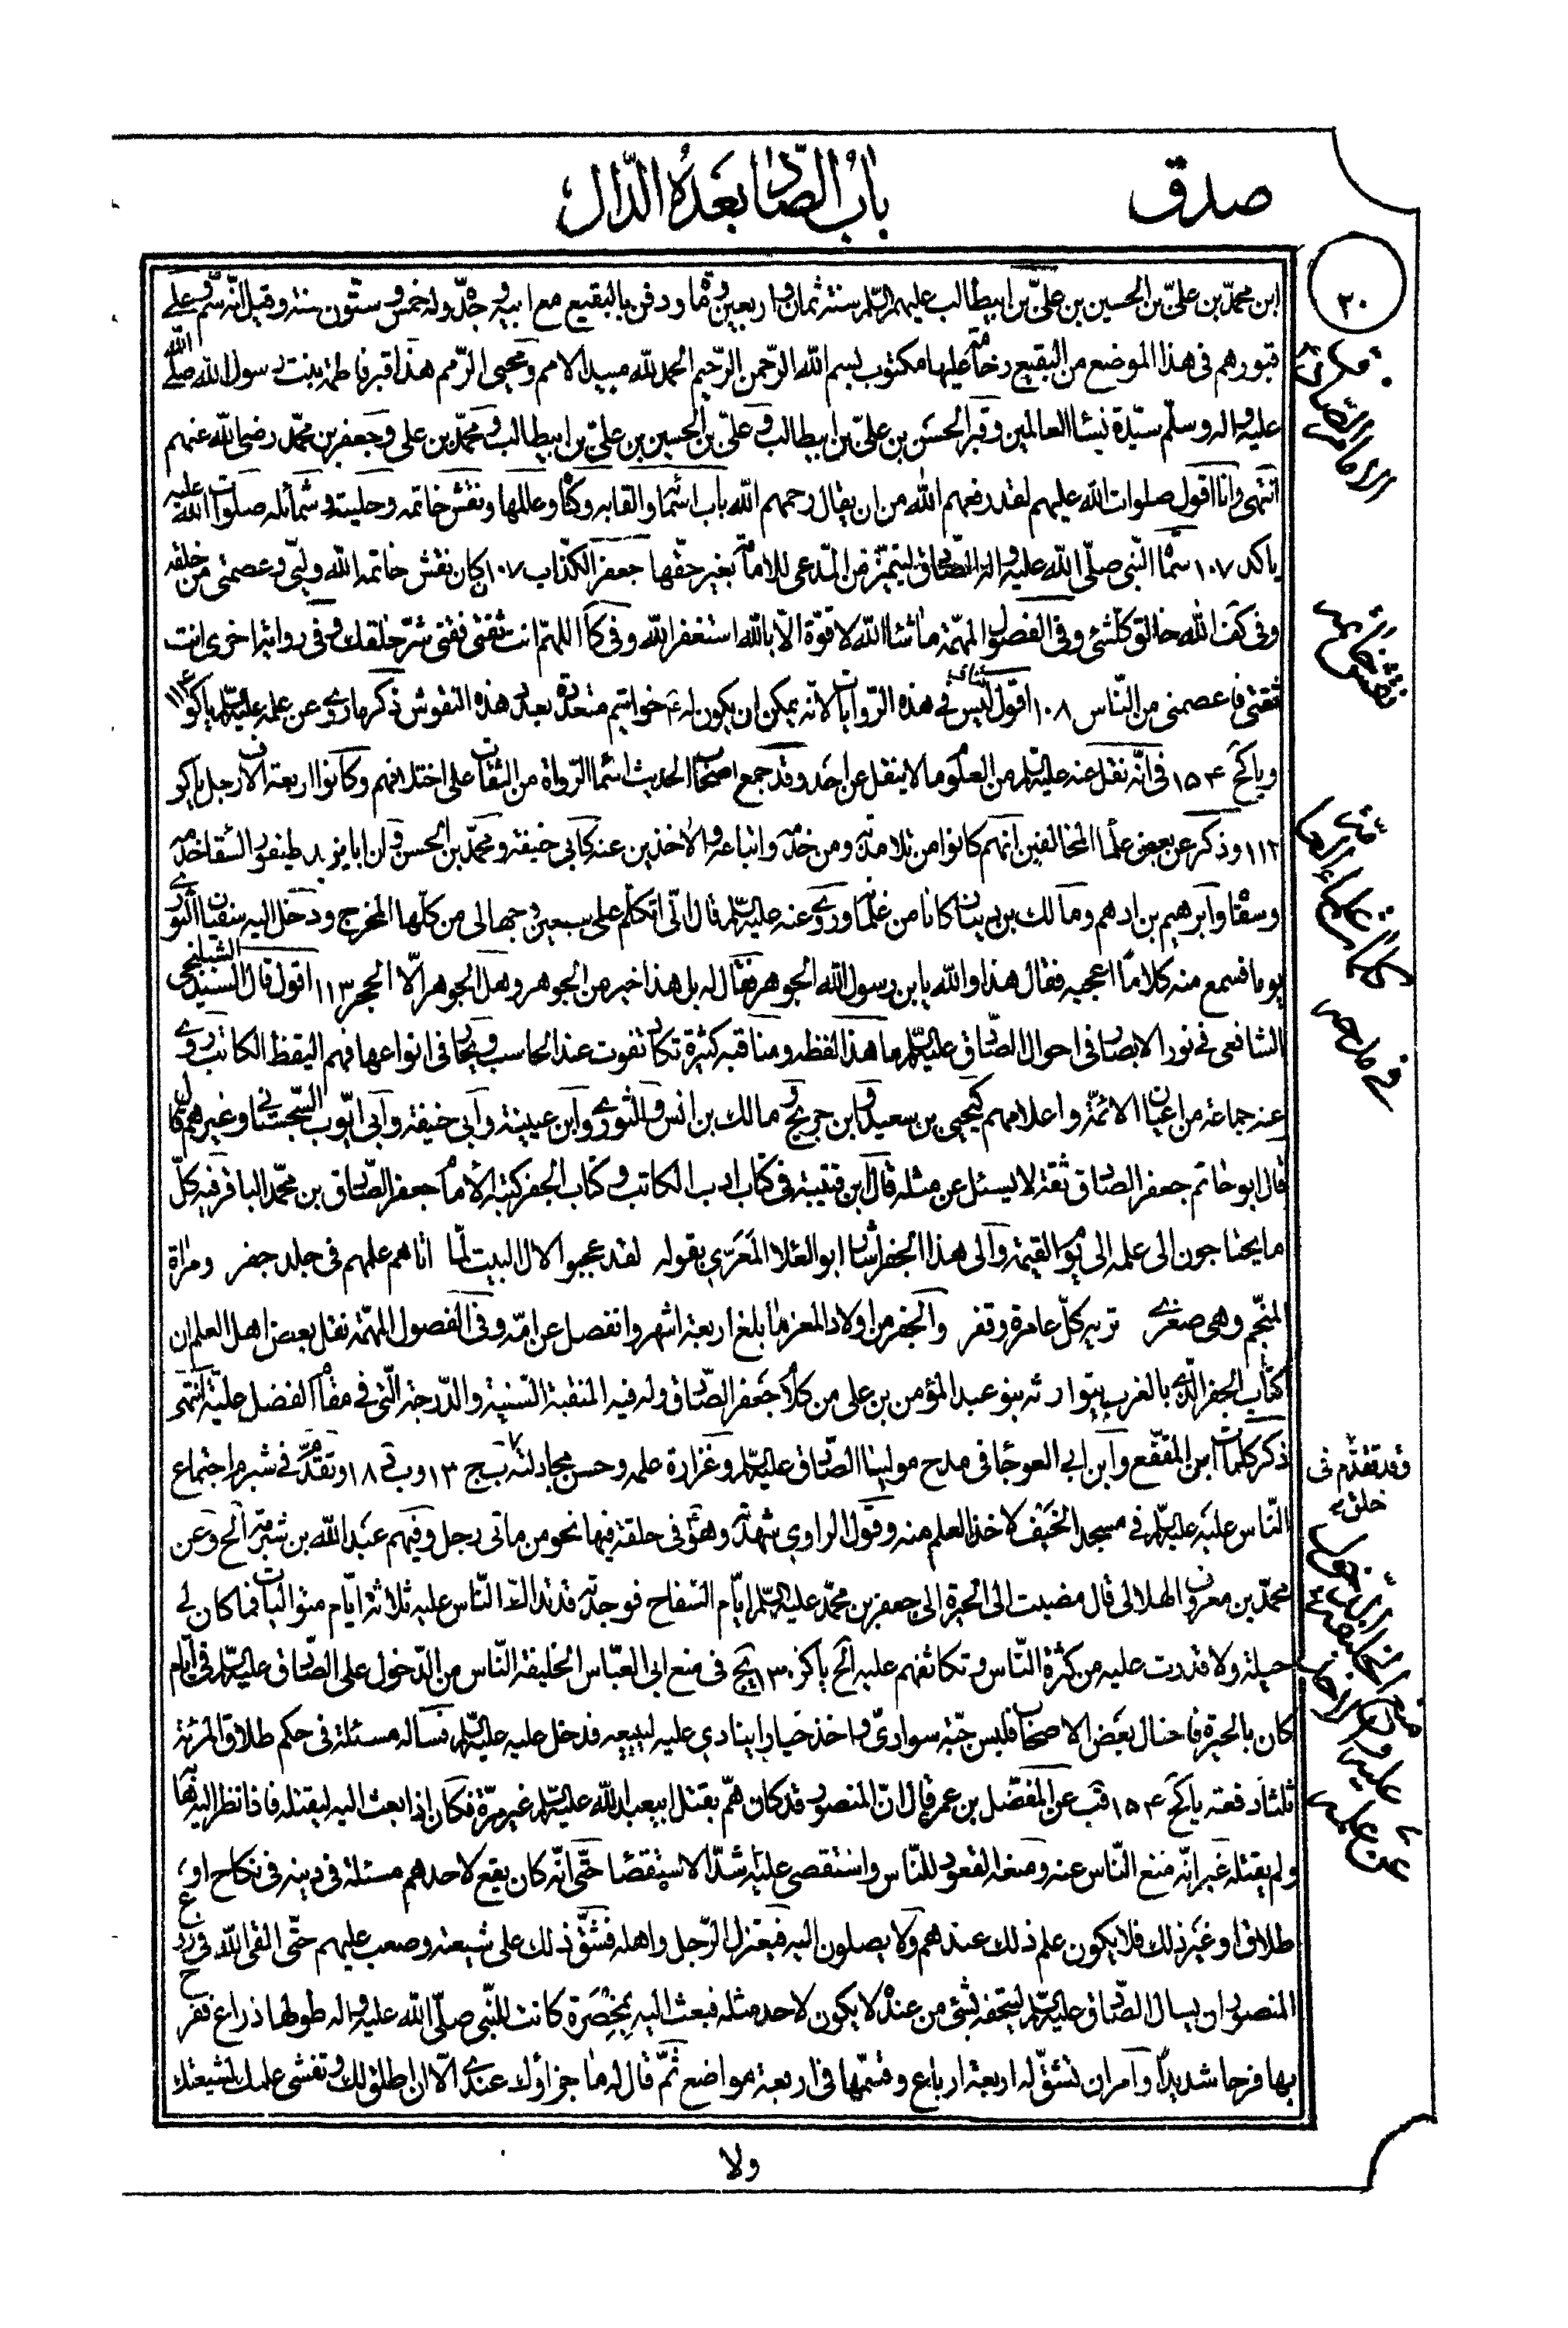 صدق
باب الصّاد بعده الدّال
٣٠
ابن محمّد بن علىّ بن الحسين بن علىّ بن ابيطالب عليهم السّلم سنة ثمان واربعين ومأة ودفن بالبقيع مع ابيه وجدّه وله خمس وستّون سنة وقيل انّه سمّ وعلى
قبورهم فى هذا الموضع من البقيع رخامة عليها مكتوب بسم الله الرّحمن الرّحيم الحمد لله مبيد الامم ومحيى الرّمم هذا قبر فاطمة بنت رسول الله صلّى الله
عليه واله وسلّم سيّدة نساء العالمين وقبر الحسن بن علىّ بن ابيطالب وعلىّ بن الحسين بن علىّ بن ابيطالب ومحمّد بن على وجعفر بن محمّد رضى الله عنهم
انتهى وانا اقول صلوات الله عليهم لقد رفعهم الله من ان يقال رحمهم الله باب اسمائه والقابه وكناه وعللها ونقش خاتمه وحليته وشمائله صلوات الله عليه
ياكد ١٠٧ سمّاه النّبى صلّى الله عليه واله الصّادق ليتميّز من المدّعى للامامة بغير حقّها جعفر الكذّاب ١٠٧ كان نقش خاتمه الله وليّى وعصمتى من خلقه
وفى كف الله خالق كلّ شئ وفى الفصول المهمّة ما شاء الله لا قوّة الّا بالله استغفر الله وفى كا اللهمّ انت ثقتى فقنى شرّ خلقك وفى رواية اخرى انت
ثقتى فاعصمنى من النّاس ١٠٨ اقول ليس فى هذه الرّوايات تناف لانّه يمكن ان يكون له ع خواتيم متعدّدة بعدد هذه النقوش ذكر ما روى عن علمه عليه السّلم ياكو ١١٣
وياكح ١٥٤ فى انّه نقل عنه عليه السّلم من العلوم ما لا ينقل عن احد وقد جمع اصحاب الحديث اسماء الرّواة من الثقات على اختلافهم وكانوا اربعة الاف رجل ياكو
١١٢ وذكر عن بعض علماء المخالفين انّهم كانوا من تلامذته ومن خدمه واتباعه والاخذين عنه كابى حنيفة ومحمّد بن الحسن وان ابا يزيد طيفور السّقا خدمه
وسقاه وابرهيم بن ادهم ومالك بن دينار كانا من غلمانه وروى عنه عليه السّلم قال انّى اتكلّم على سبعين وجها لى من كلّها المخرج ودخل اليه سفيان الثّورى
يوما فسمع منه كلاما اعجبه فقال هذا والله يابن رسول الله الجوهر فقال له بل هذا خير من الجوهر وهل الجوهر الّا الحجر ١١٣ اقول قال السّيّد الشبلنجى
الشافعى فى نور الابصار فى احوال الصّادق عليه السّلم ما هذا لفظه ومناقبه كثيرة تكاد تفوت عند الحاسب ويحار فى انواعها فهم اليقظ الكاتب روى
عنه جماعة من اعيان الائمّة واعلامهم كيحيى بن سعيد وابن جريج ومالك بن انس والثّورى وابن عيينة وابى حنيفة وابى ايّوب السّجستانى وغيرهم قال
قال ابو حاتم جعفر الصّادق ثقة لا يسئل عن مثله قال ابن قتيبة فى كتاب ادب الكاتب وكتاب الجفر كتبه الامام جعفر الصّادق بن محمّد الباقر فيه كلّ
ما يحتاجون الى علمه الى يوم القيمة والى هذا الجفر اشار ابو العلاء المعرّى بقوله لقد عجبوا لال البيت لمّا اتاهم علمهم فى جلد جفر ومراة
المنجّم وهى صغرى تريه كلّ عامرة وقفر والجفر من اولاد المعز ما بلغ اربعة اشهر وانفصل عن امّه وفى الفصول المهمّة نقل بعض اهل العلم ان
كتاب الجفر الّذى بالمغرب يتوارثه بنو عبد المؤمن بن على من كلام جعفر الصّادق وله فيه المنقبة السّنيّة والدّرجة الّتى فى مقام الفضل عليّة انتهى
ذكر كلمات ابن المقفّع وابن ابى العوجاء فى مدح مولينا الصّادق عليه السّلم وغزارة علمه وحسن مجادلته ب ج ١٣ وب ٧ ١٨ وتقدّم فى شبرم اجتماع
النّاس عليه عليه السّلم فى مسجد الخيف لاخذ العلم منه وقول الراوى شهدته وهو فى حلقة فيها نحو من مأتى رجل وفيهم عبد الله بن شبرمة الخ وعن
محمّد بن معروف الهلالى قال مضيت الى الحيرة الى جعفر بن محمّد عليه السّلم ايّام السّفاح فوجدته قد تداكّ النّاس عليه ثلاثة ايّام متواليات فما كان لى
حيلة ولا قدرت عليه من كثرة النّاس وتكاثفهم عليه الخ ياكز ١٣٠ يج فى منع ابى العبّاس الخليفة النّاس من الدّخول على الصّادق عليه السّلم فى ايّام
كان بالحيرة فاحتال بعض الاصحاب فلبس جبّة سوادىّ واخذ خيارا ينادى عليه ليبيعه فدخل عليه عليه السّلم فسأله مسئلة فى حكم طلاق المرئة
ثلثا دفعة ياكح ١٥٤ قب عن المفضّل بن عمر قال انّ المنصور قد كان همّ بقتل ابيعبد الله عليه السّلم غير مرّة فكان اذا بعث اليه ليقتله فاذا نظر اليه هابه
ولم يقتله غير انّه منع النّاس عنه ومنعه القعود للنّاس واستقصى عليه اشدّ الاستقصاء حتّى انّه كان يقع لاحدهم مسئلة فى دينه فى نكاح او
طلاق او غير ذلك فلا يكون علم ذلك عندهم ولا يصلون اليه فيعتزل الرّجل واهله فشقّ ذلك على شيعته وصعب عليهم حتّى القى الله فى روع
المنصور ان يسال الصّادق عليه السّلم ليتحفه بشئ من عنده لا يكون لاحد مثله فبعث اليه بمخصرة كانت للنّبى صلّى الله عليه واله طولها ذراع ففرح
بها فرحا شديدا وامر ان تشقّ له اربعة ارباع وقسّمها فى اربعة مواضع ثمّ قال له ما جزاؤك عندى الّا ان اطلق لك وتفشى علمك لشيعتك
نقش خاتمه
وقد تقدّم فى
خلق
ولا